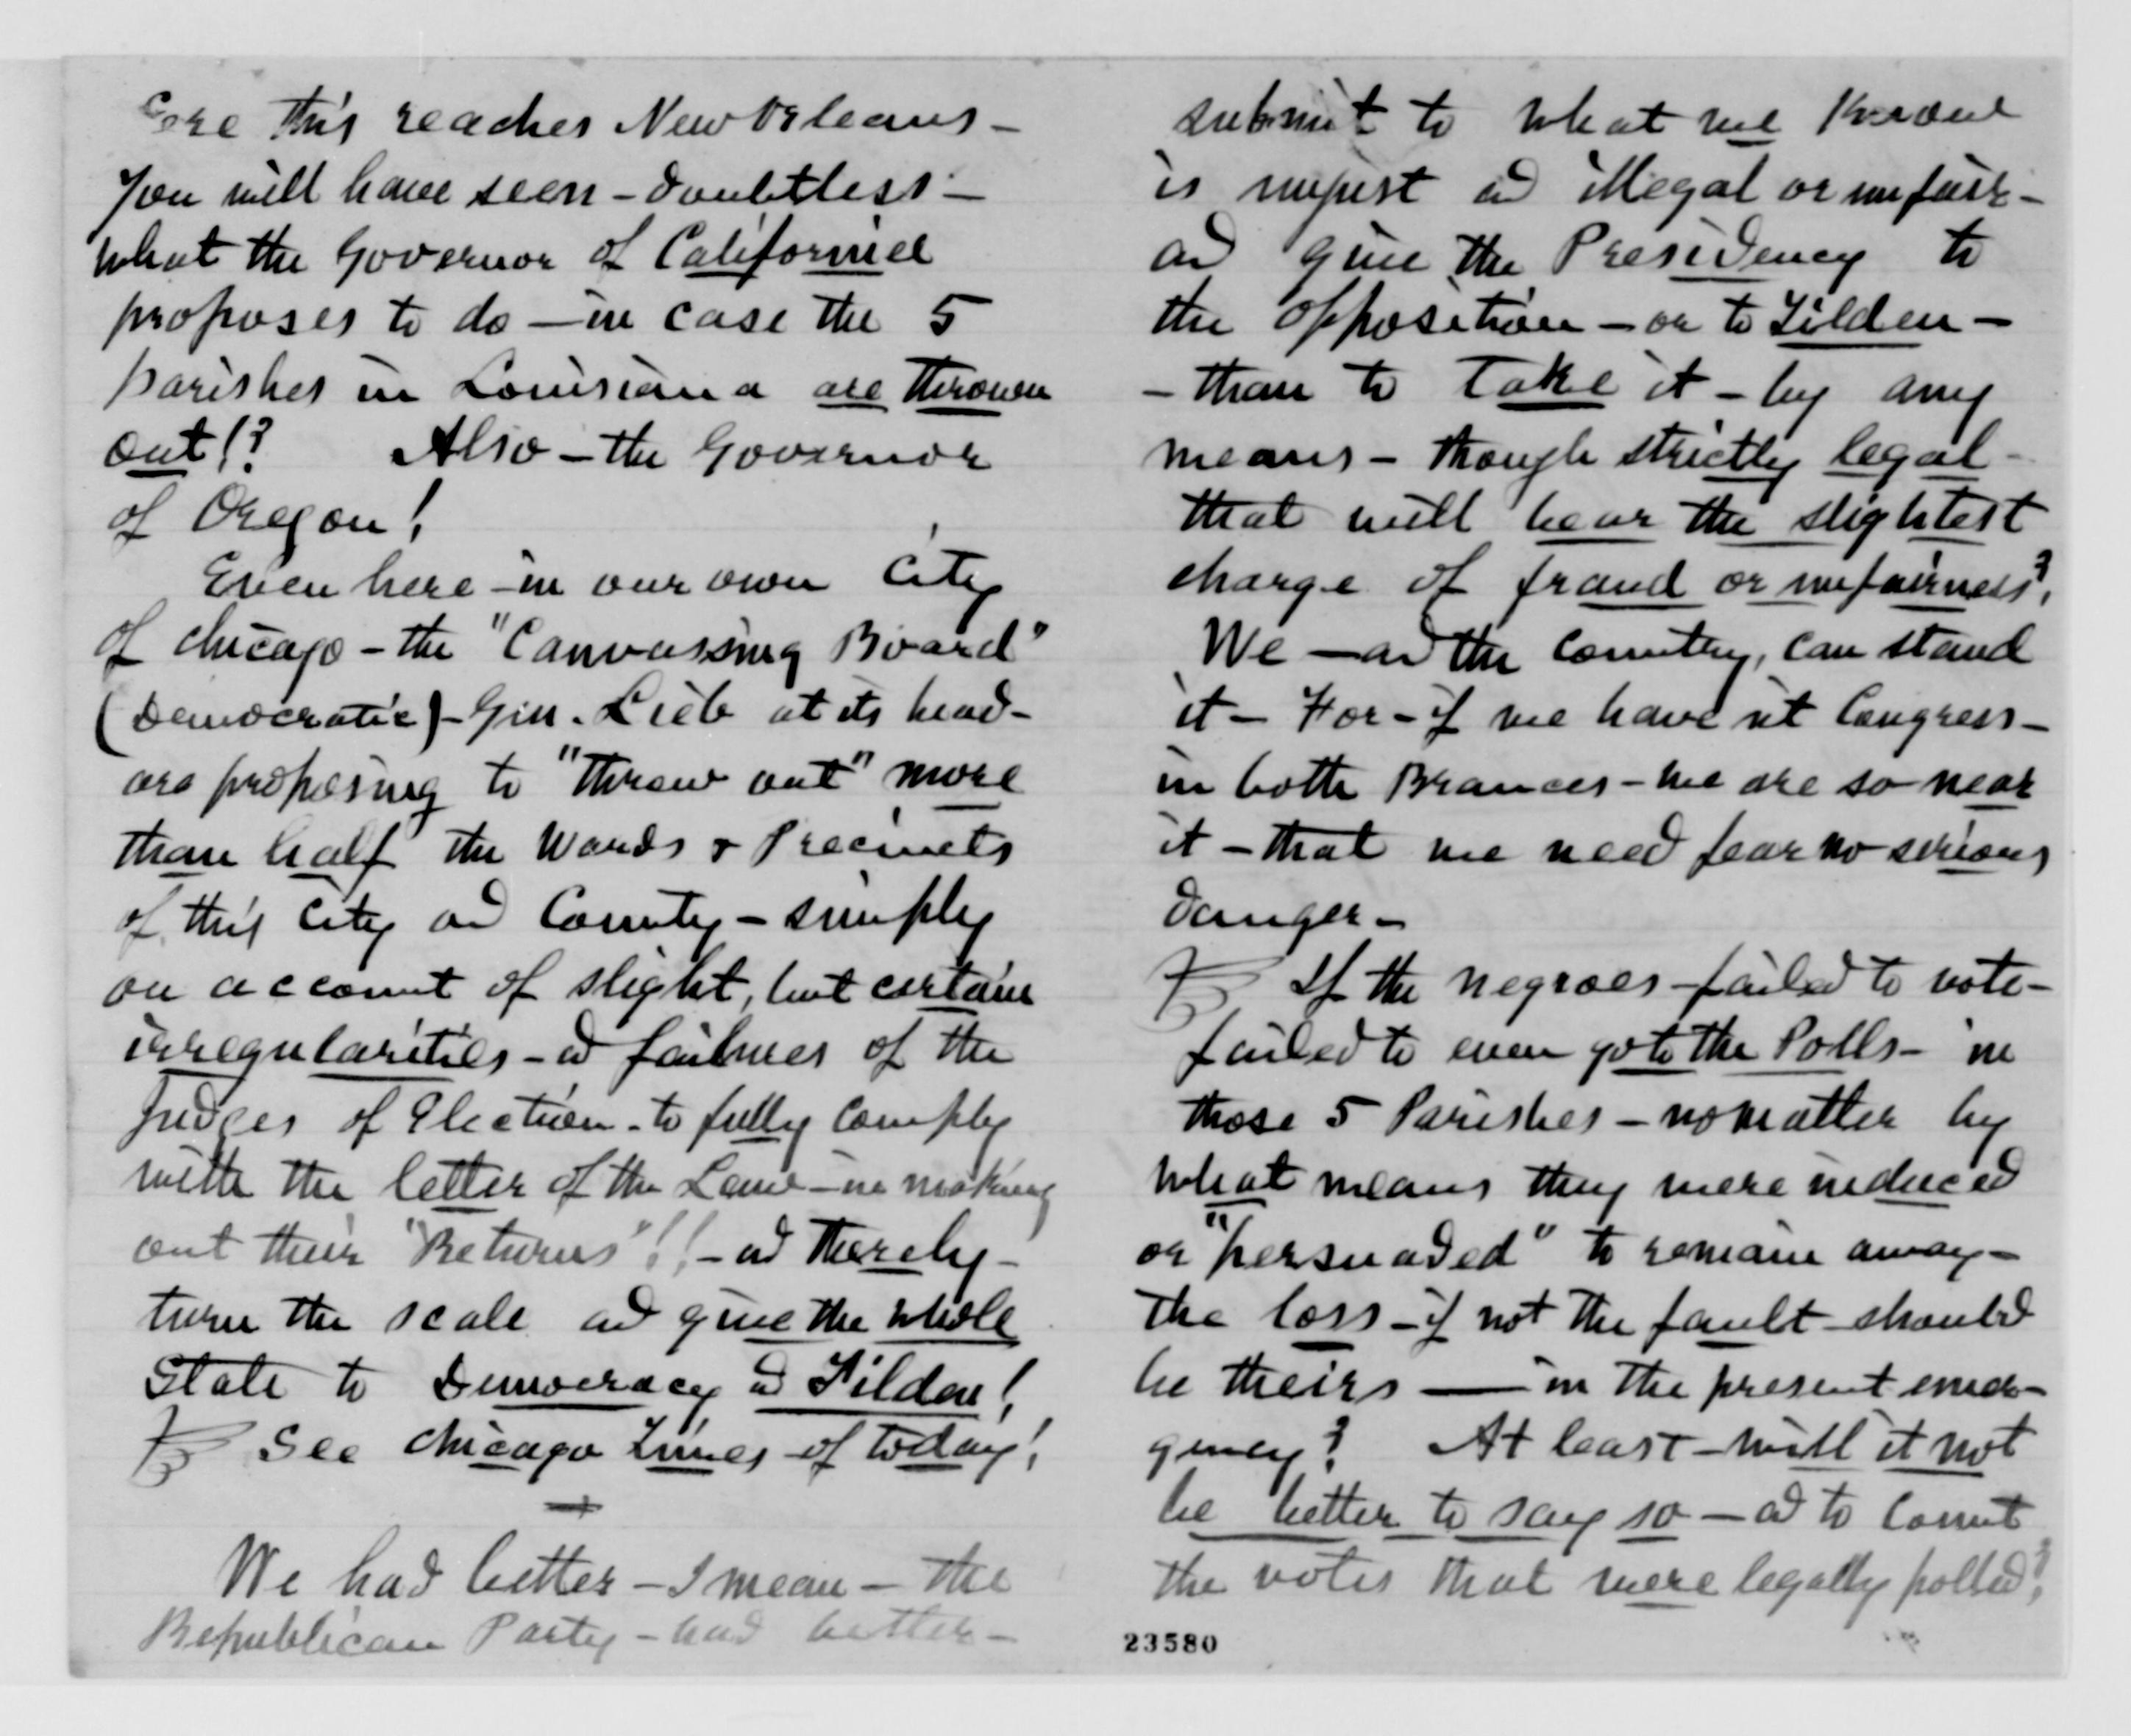 Ere this reaches New Orleans -
You will have seen - doubtless -
what the Governor of California
proposes to do - in case the 5
parishes in Louisiana are thrown
out!? Also - the Governor
of Oregon!
Even here - in our own City
of Chicago - the "Canvassing Board"
(Democratic) - Gen. Lieb at its head -
are proposing to "throw out" more
than half the Wards & Precincts
of this City and County - simply
on account of slight, but certain
irregularities - & failures of the
Judges of Election - to fully comply
with the letter of the Law - in making
out their "Returns"!! - and thereby -
turn the scale and give the whole
State to Democracy & Tilden!
See Chicago Times of today!
We had better - I mean - the
Republican Party - had better -
submit to what we
is unjust and illegal or unfair -
and give the Presidency to
the opposition - or to Tilden -
- than to take it - by any
means - though strictly legal -
that will bear the slightest
charge of fraud or unfairness?
We - and the Country, can stand
it - For - if we have not Congress -
in both Brances - we are so near
it - that we need fear no serious
danger -
If the negroes - failed to vote -
failed to even go to the Polls - in
those 5 Parishes - no matter by
what means they were induced
or "persuaded" to remain away -
the loss - if not the fault - should
be theirs - in the present emer-
gency? At least - will it not
be better to say so - and to count
the votes that were legally polled?
23580